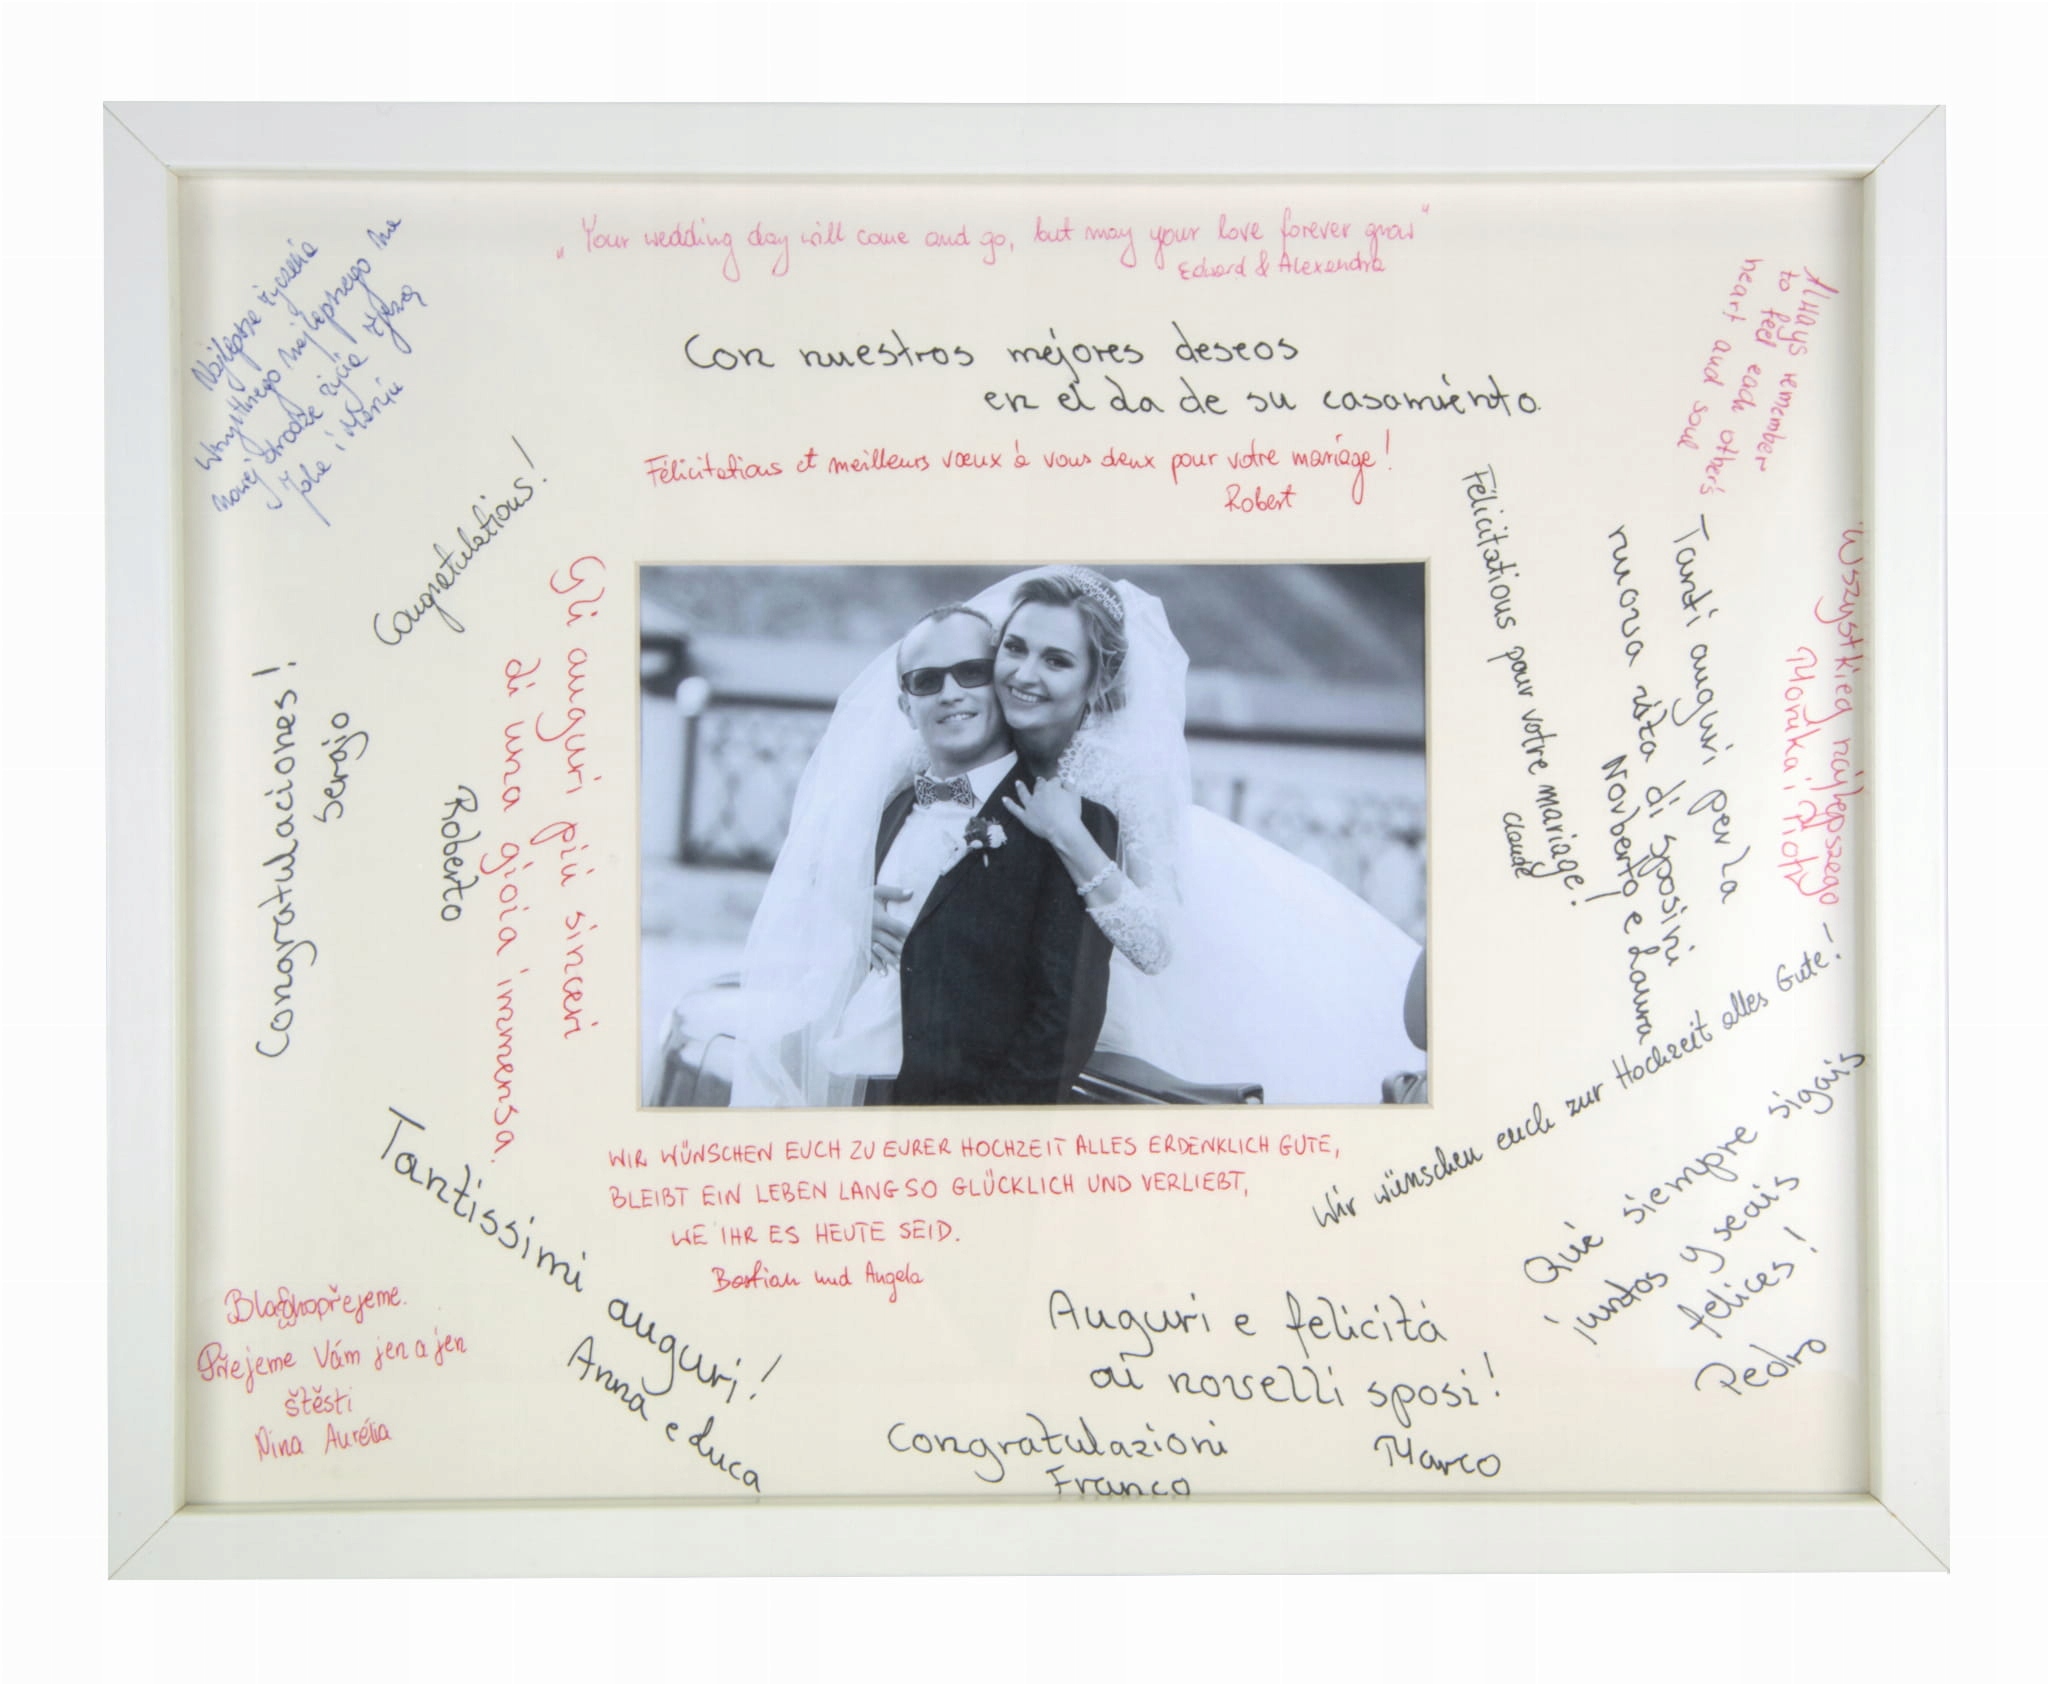 „Your wedding day will come and go, but may your love forever grow"
Eduard & Alexandra
Con nuestros mejores deseos
en el da de su casamiento.
Félicitations et meilleurs vœux à vous deux pour votre mariage!
Robert
Najlepsze życzenia
Wszystkiego najlepszego na
nowej drodze życia życzą
i
Congratulations!
Congratulaciones!
Serájo
Gli auguri più sinceri
di una gioia immensa.
Roberto
Always remember
to feel each other's
heart and soul
Félicitations pour votre mariage!
Claude
Tanti auguri per la
nuova vita di sposini
Norberto e Laura
Wszystkieg najlepszego
Monika i Piotr
Wir wünschen euch zur Hochzeit alles Gute!
Qué siempre sigais
juntos y seais
felices!
Pedro
WIR WÜNSCHEN EUCH ZU EURER HOCHZEIT ALLES ERDENKLICH GUTE,
BLEIBT EIN LEBEN LANG SO GLÜCKLICH UND VERLIEBT,
WE IHR ES HEUTE SEID.
Bastian und Angela
Tantissimi auguri!
Anna e Luca
Přejeme Vám jen a jen
štěsti
Nina Aurélia
Auguri e felicitá
ai novelli sposi!
Marco
Congratulazioni
Franco